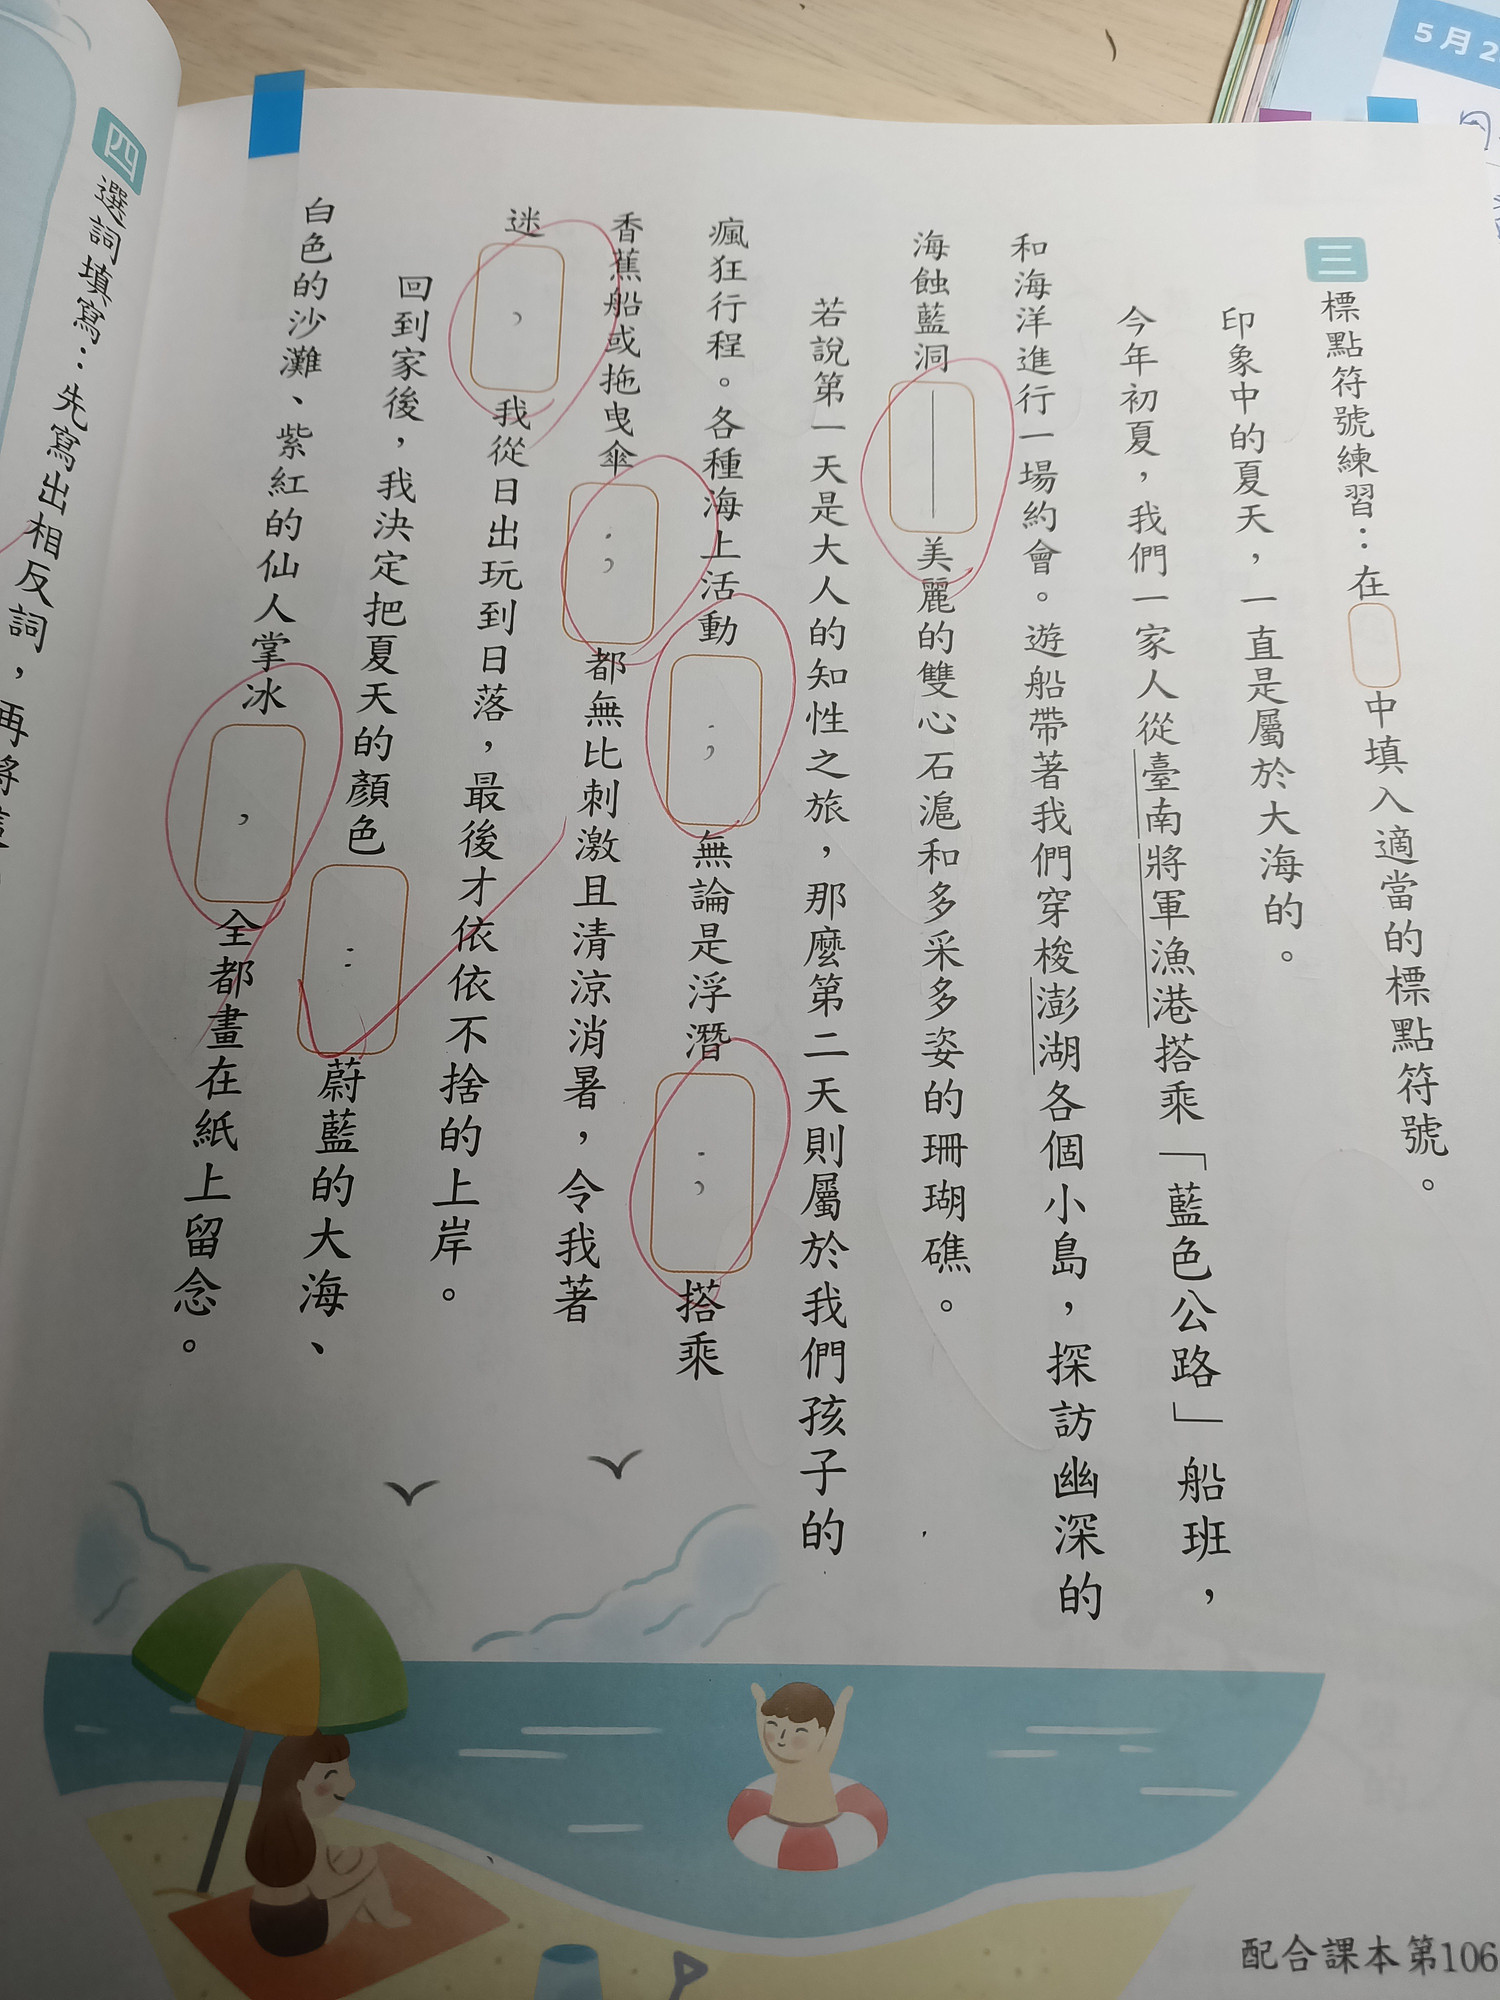 三 標點符號練習：在 中填入適當的標點符號。
印象中的夏天，一直是屬於大海的。
今年初夏，我們一家人從臺南將軍漁港搭乘「藍色公路」船班，
和海洋進行一場約會。遊船帶著我們穿梭澎湖各個小島，探訪幽深的
海蝕藍洞—美麗的雙心石滬和多采多姿的珊瑚礁。
若說第一天是大人的知性之旅，那麼第二天則屬於我們孩子的
瘋狂行程。各種海上活動；無論是浮潛；搭乘
香蕉船或拖曳傘；都無比刺激且清涼消暑，令我著
迷，我從日出玩到日落，最後才依依不捨的上岸。
回到家後，我決定把夏天的顏色：蔚藍的大海、
白色的沙灘、紫紅的仙人掌冰，全都畫在紙上留念。
四 選詞填寫：先寫出相反詞，再將
配合課本第106
5月2